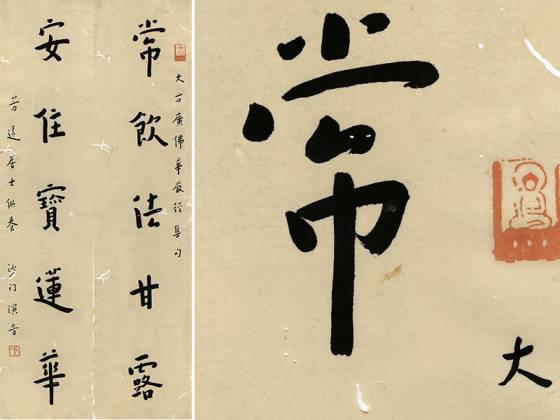 大方廣佛華嚴經集句
常飲法甘露
安住寶蓮華
芳遠居士供養 沙門演音
常
大